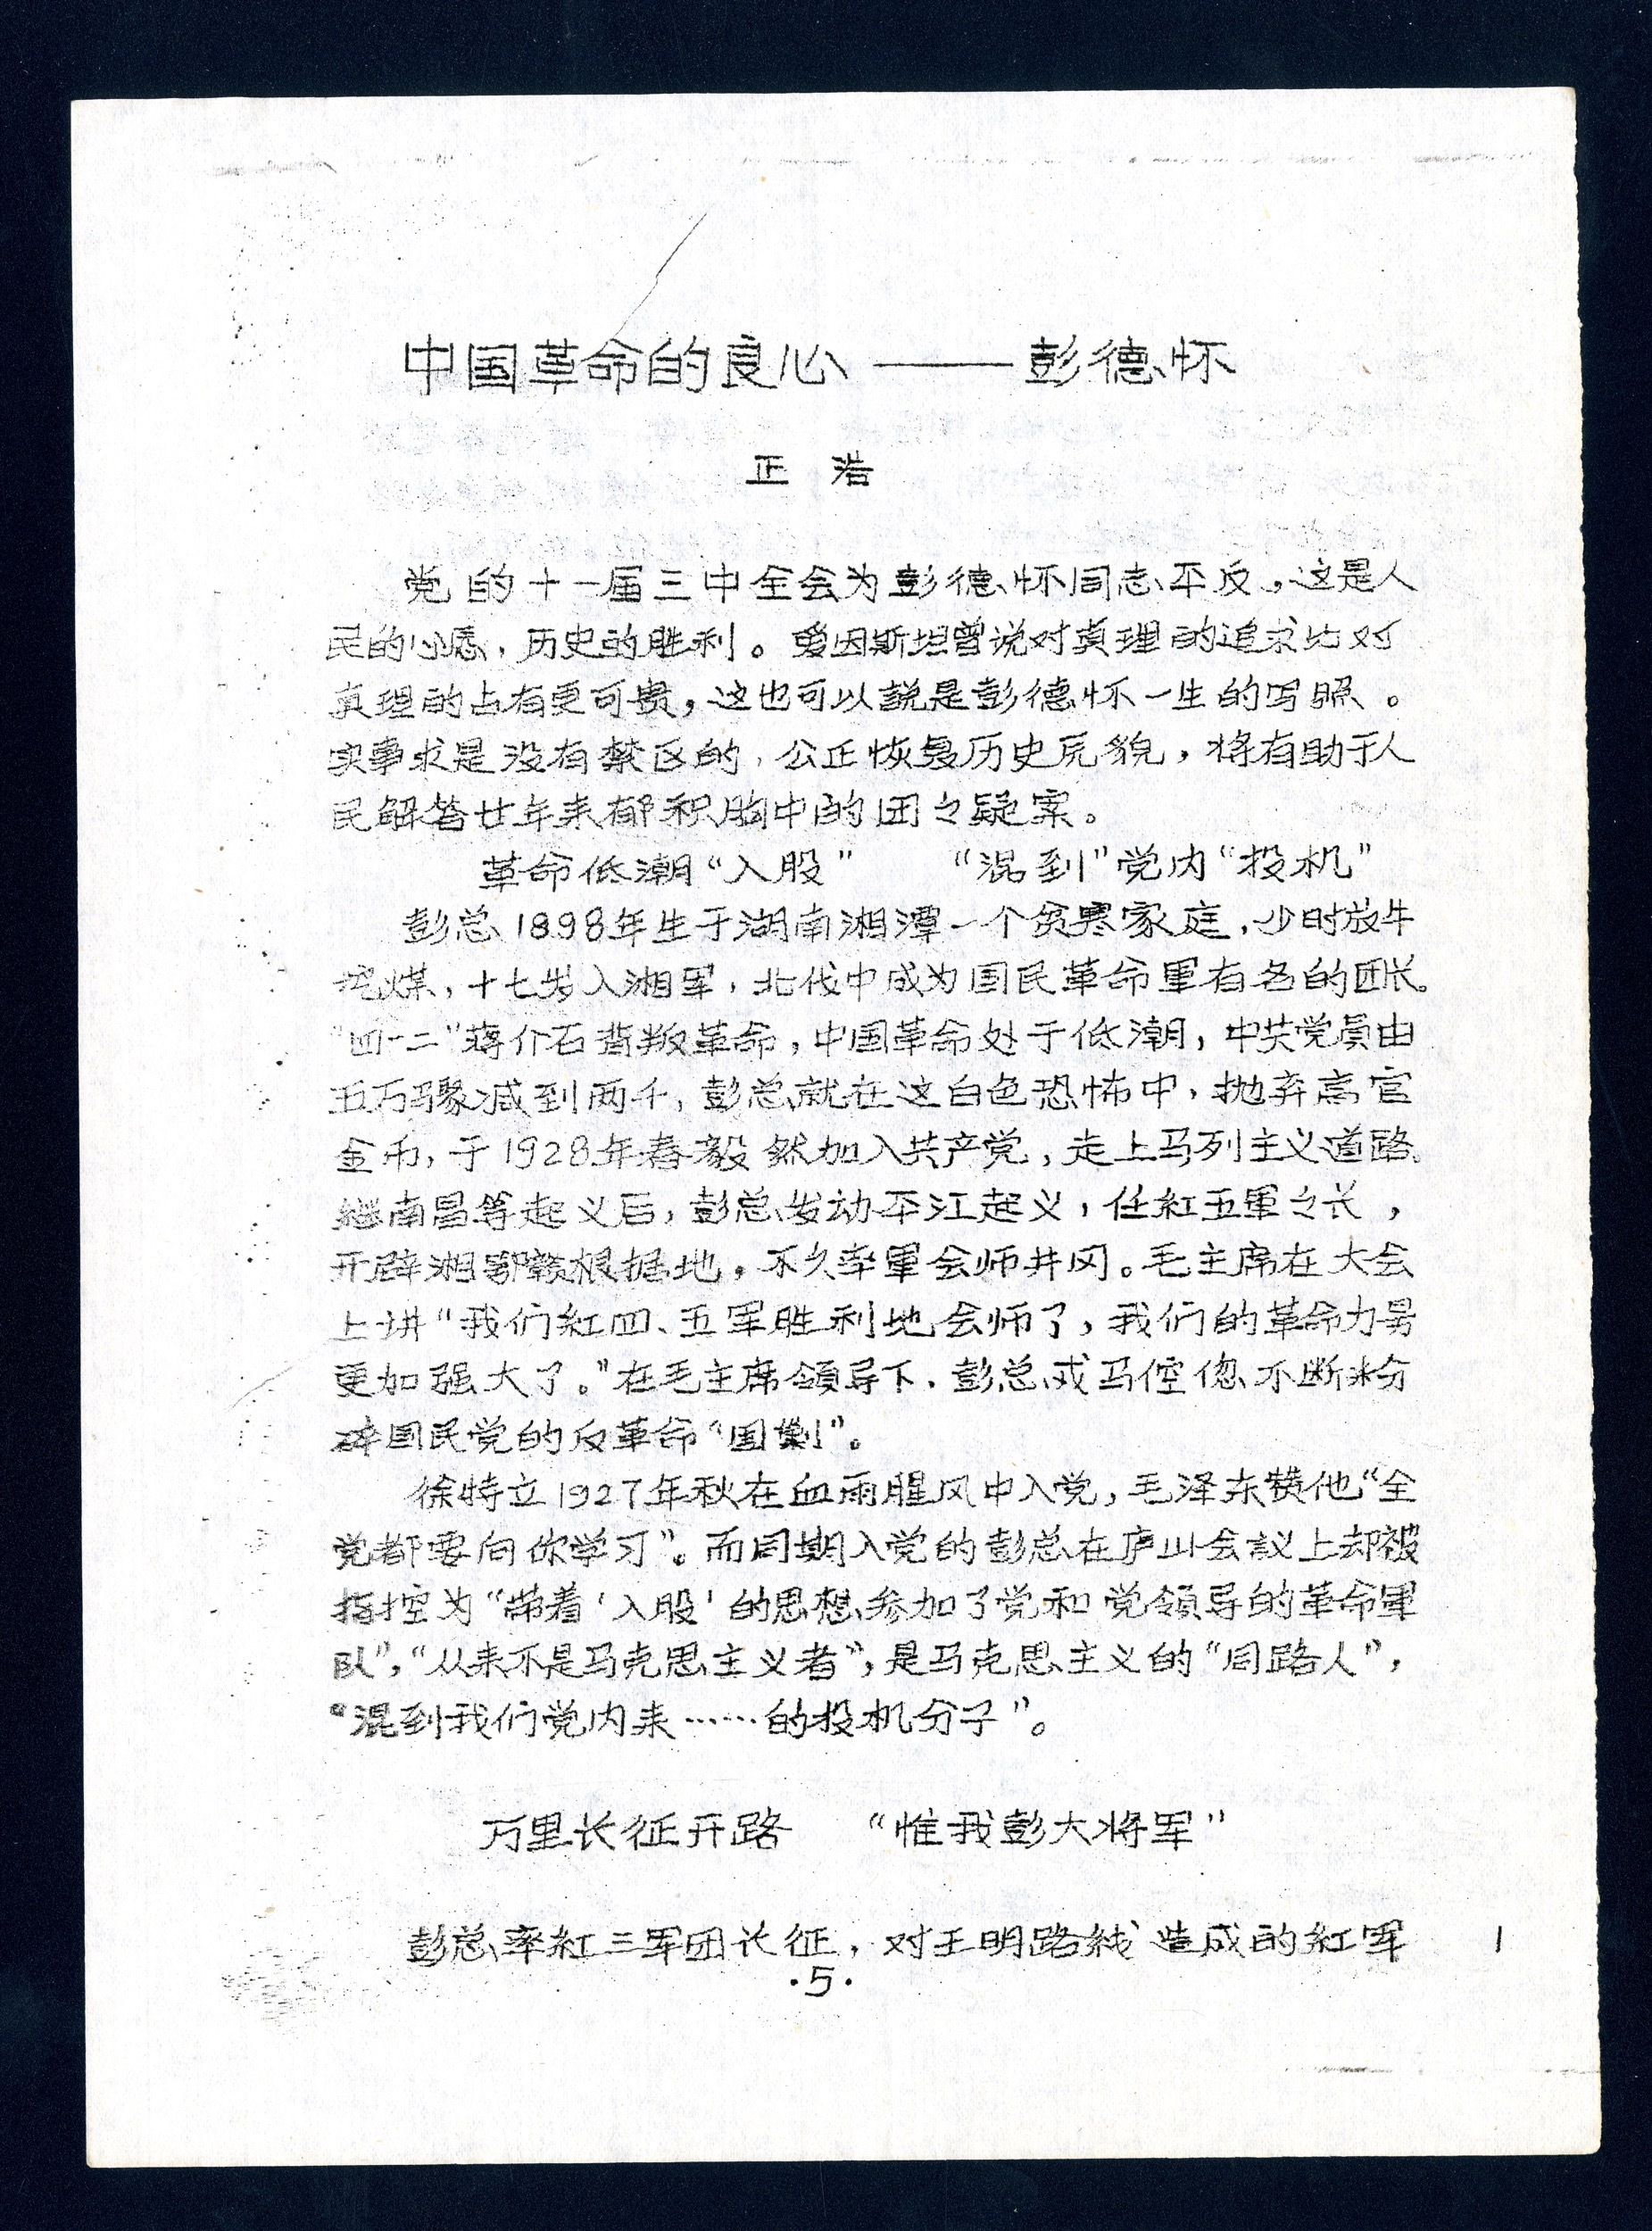 中国革命的良心——彭德怀
正浩
党的十一届三中全会为彭德怀同志平反，这是人
民的心愿，历史的胜利。爱因斯坦曾说对真理的追求比对
真理的占有更可贵，这也可以説是彭德怀一生的写照。
实事求是没有禁区的，公正恢复历史原貌，将有助于人
民解答廿年来郁积胸中的团々疑案。
革命低潮“入股”　“混到”党内“投机”
彭总1898年生于湖南湘潭一个贫寒家庭，少时放牛
挖煤，十七岁入湘军，北伐中成为国民革命军有名的团长。
“四一二”蒋介石背叛革命，中国革命处于低潮，中共党员由
五万骤减到两千，彭总就在这白色恐怖中，抛弃高官
金币，于1928年春毅然加入共产党，走上马列主义道路。
继南昌等起义后，彭总发动平江起义，任紅五军之长，
开辟湘鄂赣根据地，不久率军会师井冈。毛主席在大会
上讲“我们紅四、五军胜利地会师了，我们的革命力量
更加强大了。”在毛主席領导下，彭总戎马倥偬不断粉
碎国民党的反革命“围剿”。
徐特立1927年秋在血雨腥风中入党，毛泽东赞他“全
党都要向你学习”。而同期入党的彭总在庐山会議上却被
指控为“带着‘入股’的思想参加了党和党領导的革命軍
队”，“从来不是马克思主义者”，是马克思主义的“同路人”，
“混到我们党内来……的投机分子”。
万里长征开路　“惟我彭大将军”
彭总率紅三军团长征，对王明路线造成的紅军
·5·
1